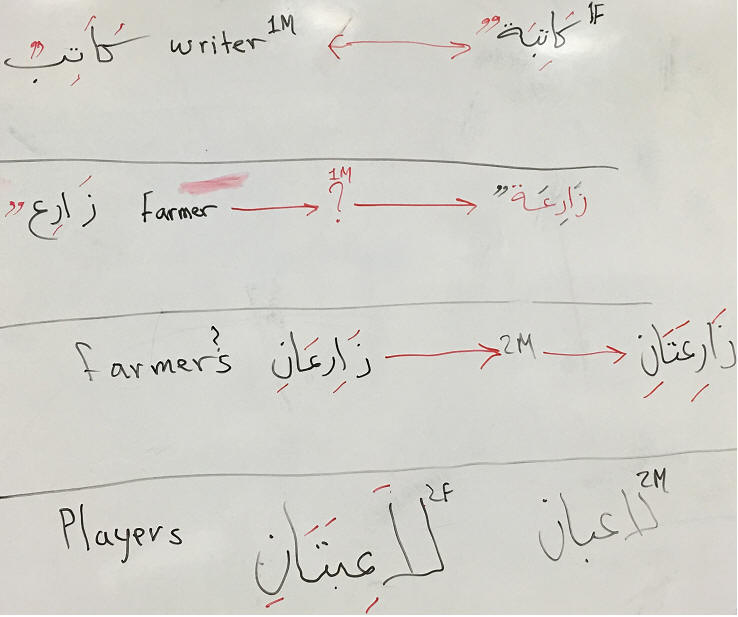 كَاتِبٌ writer 1M ↔ كَاتِبَةٌ 1F
زَارِعٌ farmer → 1M ? → زَارِعَةٌ
farmer's ? زَارِعَانِ → 2M → زَارِعَتَانِ
Players لَاعِبَتَانِ 2F لاعبان 2M